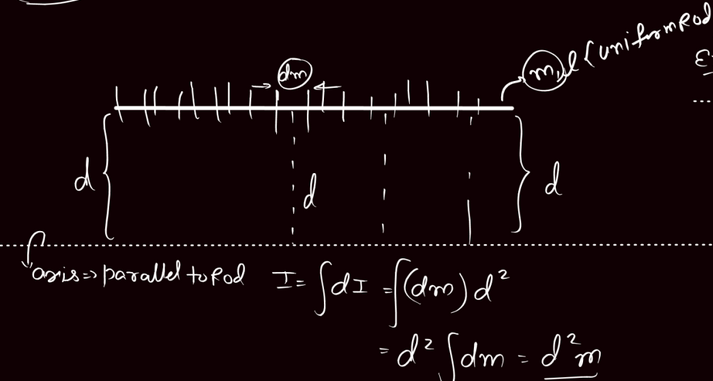 dm
m, l (uniform Rod
d
d
d
axis => parallel to Rod
I = ∫dI = ∫(dm) d²
= d² ∫dm = d²m